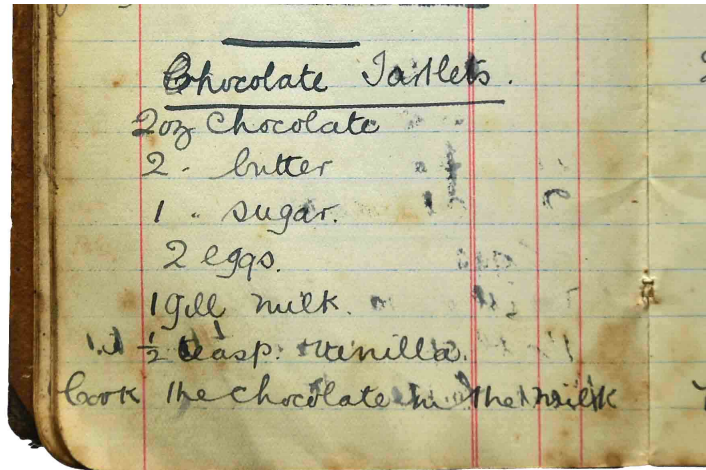 Chocolate Tartlets.
2oz Chocolate
2 " butter
1 " sugar.
2 eggs.
1 gill milk.
½ teasp. vanilla.
Cook the chocolate in the milk